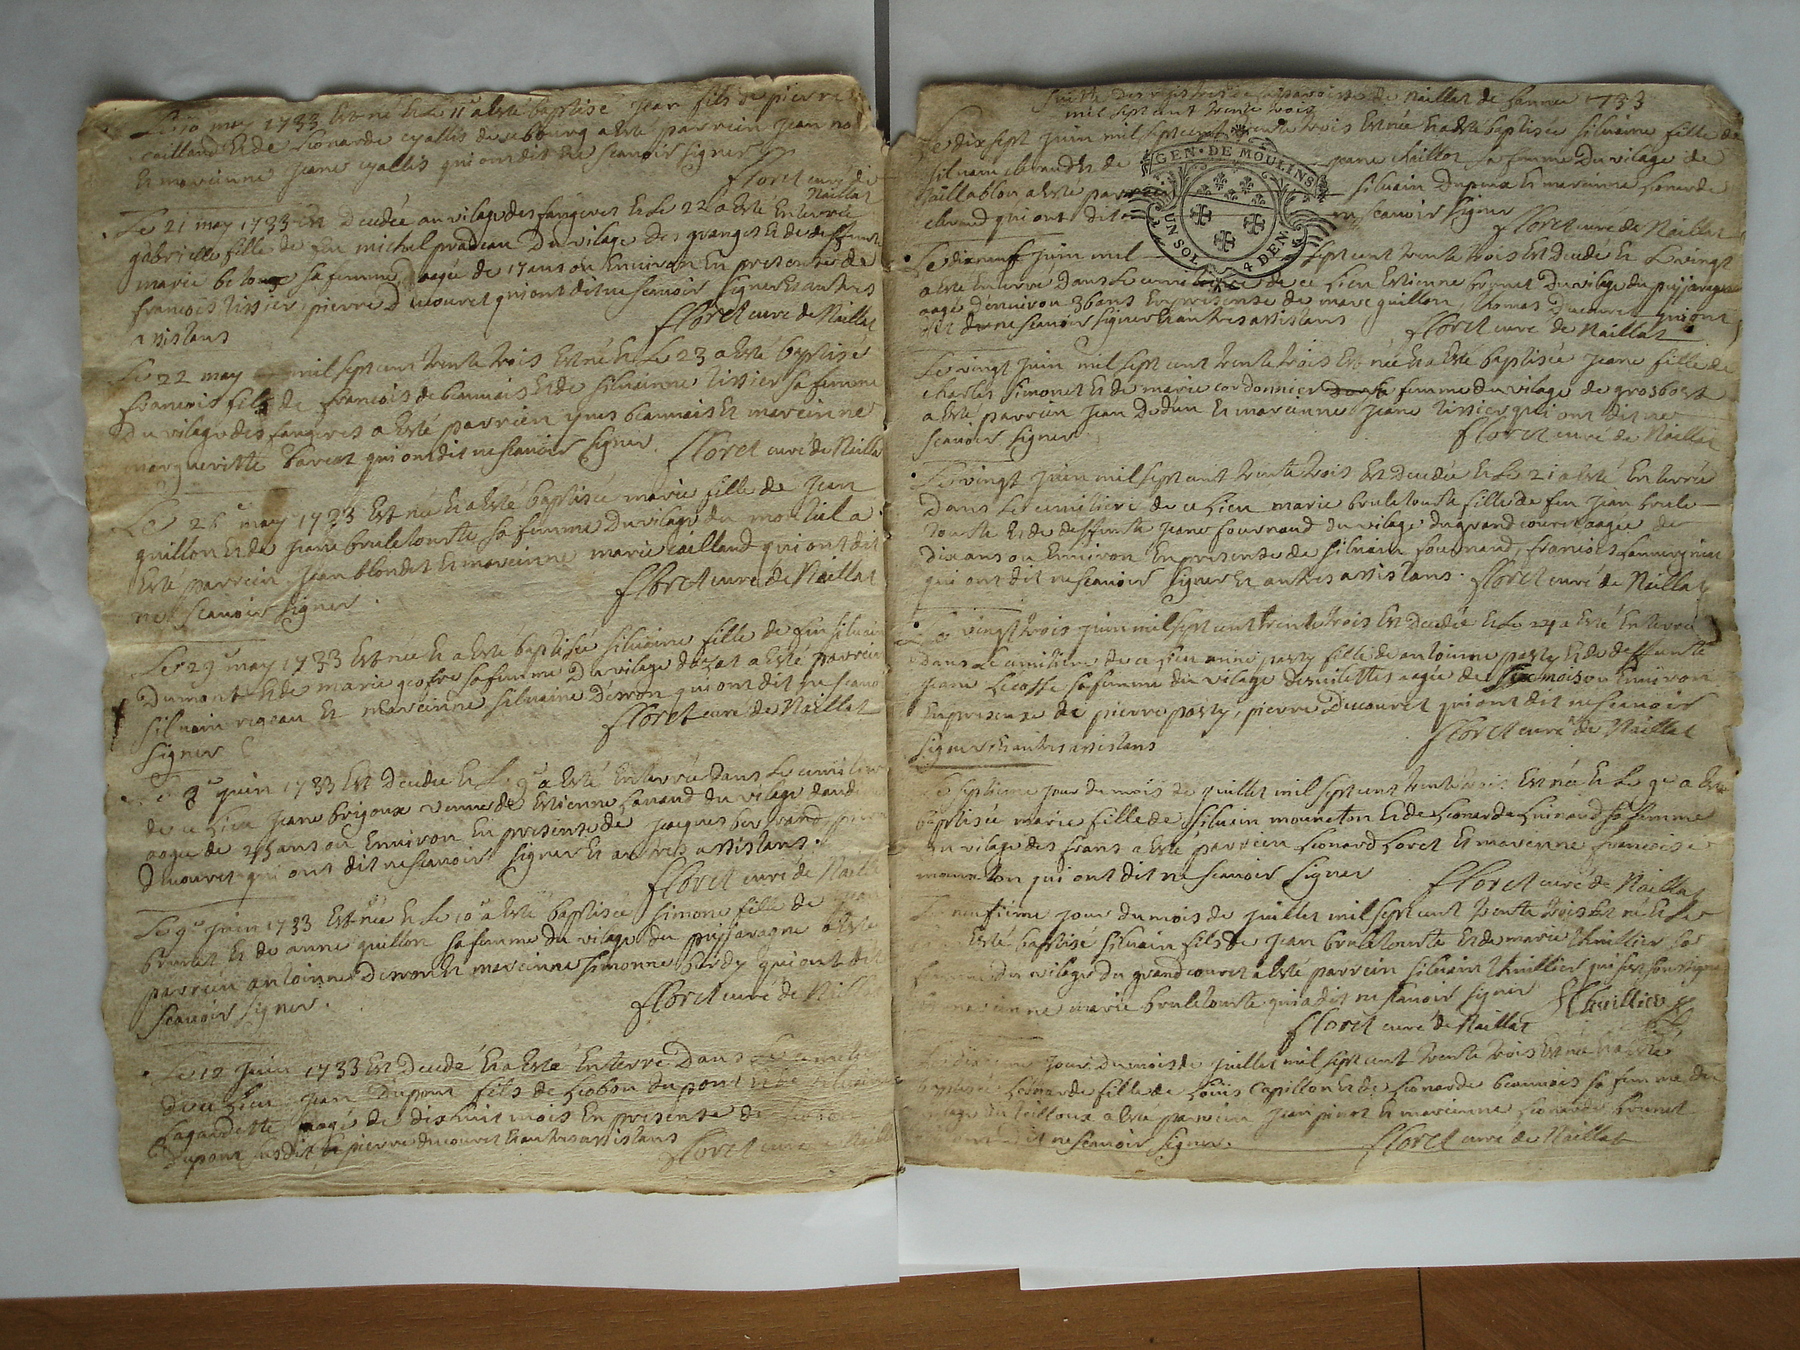 Le 10 may 1733 Est né Et Le 11e a Esté baptisé jean fils de pierre
caillaud Et de Lionarde cyallis du bourg a Esté parrein jean
Et mareinne jeane cyallis qui ont dit ne scavoir signer
floret curé de
Naillat
Le 21 may 1733 Est Decedée au vilage des fangeres Et Le 22 a Esté Enterrée
gabrielle fille de feu michel pradeau Du vilage des granges Et de deffunte
marie sa femme aagée de 17 ans ou Environ En presence de
francois tissier, pierre Ducouret qui ont dit ne scavoir signer Et autres
assistans
floret curé de Naillat
Le 22 may mil sept cent trente trois Est né Et Le 23 a Esté baptisé
francois fils de francois de beaumais Et de silvainne tissier sa femme
Du vilage des fangeres a Esté parrein yves beaumais Et mareinne
margueritte qui ont dit ne scavoir signer. floret curé de Naillat
Le may 1733 Est née Et a Esté baptisée marie fille de jean
guillon Et de jeane bruletourte sa femme Du vilage du montiel a
Esté parrein jean blondet Et mareinne marie caillaud qui ont dit
ne scavoir signer.
floret curé de Naillat
Le 29e may 1733 Est née Et a Esté baptisée silvaine fille de feu silvain
Dumont Et de marie geofre sa femme Du vilage a Esté parrein
silvain rigeau Et mareinne silvaine Demon qui ont dit ne scavoir
signer
floret curé de Naillat
Le 8e juin 1733 Est Decedée Et Le 9e a Esté Enterrée Dans Le cimitiere
de ce Lieu jeane brigoux veuve de Estienne Lavaud du vilage
aagée de ans ou Environ En presence de jacques bertrand, pierre
Ducouret qui ont dit ne scavoir signer Et autres assistans.
floret curé de Naillat
Le 9e juin 1733 Est née Et Le 10e a Esté baptisée simone fille de jean
brunet Et de anne guillon sa femme du vilage du puyjavagne a Esté
parrein antoinne Demon Et mareinne simonne hardy qui ont dit
scavoir signer.
floret curé de Naillat
Le 12 juin 1733 Est Decedé Et a Esté Enterré Dans Le cimitiere
de ce Lieu jean Dupont fils de Leobon dupont Et de silvainne
Lagardette aagé de dixhuit mois En presence de
Dupont susdit, Et pierre ducouret Et autres assistans
floret curé de Naillat
suitte des registres de la paroisse de Naillat de Lannee 1733
mil sept cent trente trois
Le dix sept juin mil sept cent trente trois Est née Et a Esté baptisée silvaine fille de
silvain Et de jeane chaillot sa femme Du vilage de
Naillablon a Esté parrein silvain Dupeux Et mareinne Lionarde
qui ont dit ne scavoir signer
floret curé de Naillat
GEN · DE MOULINS
UN SOL 4 DEN
Le dixneuf juin mil sept cent trente trois Est Decedé Et Le vingt
a Esté Enterré Dans Le cimitiere de ce Lieu Estienne brunet Du vilage du puyjavagne
aagé Denviron 36 ans En presence de marc guillon, thomas Ducouret qui ont
dit ne scavoir signer Et autres assistans floret curé de Naillat
Le vingt juin mil sept cent trente trois Est née Et a Esté baptisée jeane fille de
charles simonet Et de marie cordonnier femme du vilage de grosbost
a Esté parrein jean Dedun Et mareinne jeane tissier qui ont dit ne
scavoir signer
floret curé de Naillat
Le vingt juin mil sept cent trente trois Est Decedée Et Le 21 a Esté Enterrée
Dans Le cimitiere de ce Lieu marie bruletourte fille de feu jean brule
tourte Et de deffunte jeane fournaud du vilage du grand couret aagée de
Dix ans ou Environ En presence de silvain fournaud, francois Lamvergniat
qui ont dit ne scavoir signer Et autres assistans. floret curé de Naillat
Le vingt trois juin mil sept cent trente trois Est Decedée Et Le 24 a Esté Enterrée
Dans Le cimitiere de ce Lieu anne pasty fille de antoinne pasty Et de deffunte
jeane Lecosse sa femme du vilage aagée de six mois ou Environ
En presence de pierre pasty, pierre Ducouret qui ont dit ne scavoir
signer Et autres assistans
floret curé de Naillat
Le septieme jour du mois de juillet mil sept cent trente trois Est née Et Le 9e a Esté
baptisée marie fille de silvain moureton Et de Lionarde Lionard sa femme
du vilage des frans a Esté parrein Lionard Loret Et mareinne francoise
moureton qui ont dit ne scavoir signer floret curé de Naillat
Le neufieme jour du mois de juillet mil sept cent trente trois Est né Et Le
Esté baptisé silvain fils de jean bruletourte Et de marie thuillier sa
femme du vilage du grand couret a Esté parrein silvain thuillier qui sest soussigné
mareinne marie bruletourte qui a dit ne scavoir signer Thuillier
floret curé de Naillat
jour du mois de juillet mil sept cent trente trois Est née Et a Esté
baptisée Lionarde fille de Louis Capillon Et de Lionarde beaumais sa femme du
vilage du a Esté parrein jean pinot Et mareinne Lionarde brunet
qui ont dit ne scavoir signer. floret curé de Naillat